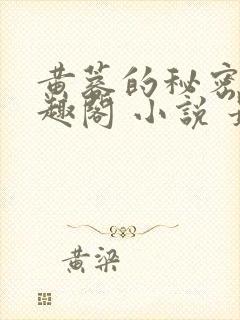 黄墓的秘密
趣阁 小说
黄梁